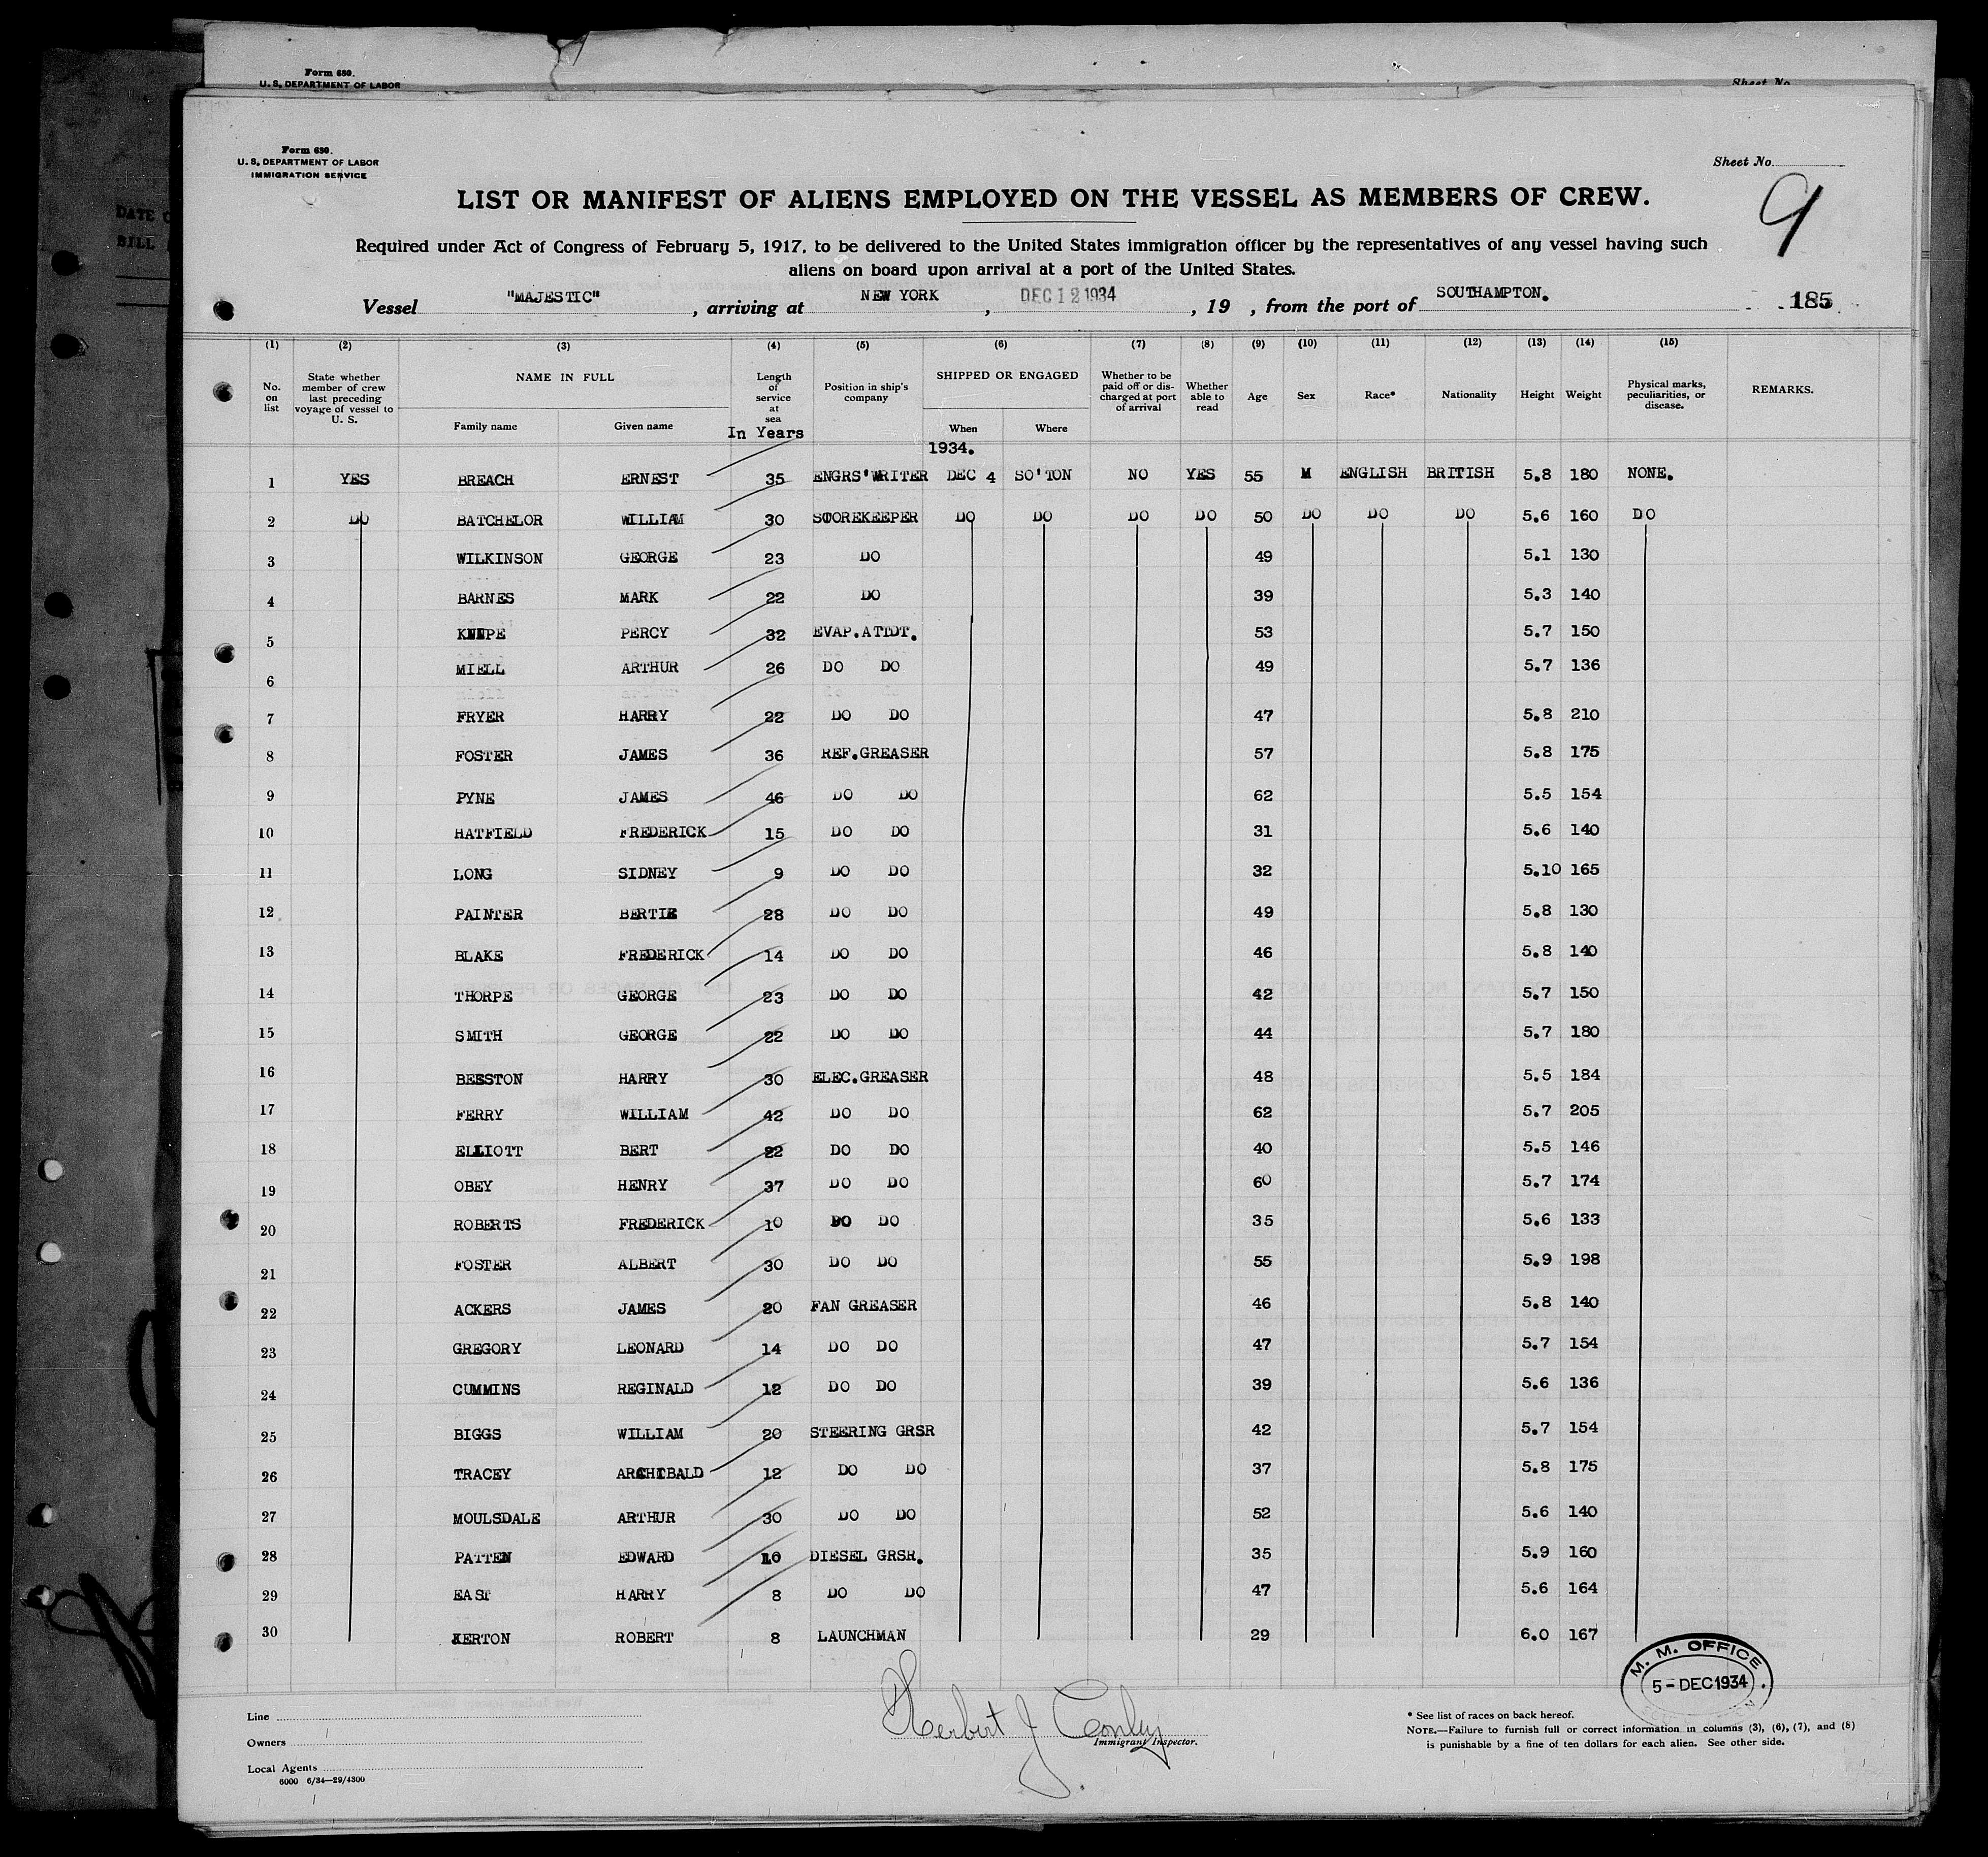 Form 680.
U. S. DEPARTMENT OF LABOR
Sheet No.
DATE
BILL
Form 680.
U. S. DEPARTMENT OF LABOR
IMMIGRATION SERVICE
Sheet No.
9
LIST OR MANIFEST OF ALIENS EMPLOYED ON THE VESSEL AS MEMBERS OF CREW.
Required under Act of Congress of February 5, 1917, to be delivered to the United States immigration officer by the representatives of any vessel having such
aliens on board upon arrival at a port of the United States.
Vessel "MAJESTIC", arriving at NEW YORK, DEC 12 1934, 19 , from the port of SOUTHAMPTON. 185
(1) (2) (3) (4) (5) (6) (7) (8) (9) (10) (11) (12) (13) (14) (15)
No. on list | State whether member of crew last preceding voyage of vessel to U. S. | NAME IN FULL Family name Given name | Length of service at sea In Years | Position in ship's company | SHIPPED OR ENGAGED When Where | Whether to be paid off or discharged at port of arrival | Whether able to read | Age | Sex | Race* | Nationality | Height | Weight | Physical marks, peculiarities, or disease. | REMARKS.
1934.
1 YES BREACH ERNEST 35 ENGRS'WRITER DEC 4 SO'TON NO YES 55 M ENGLISH BRITISH 5.8 180 NONE.
2 DO BATCHELOR WILLIAM 30 STOREKEEPER DO DO DO DO 50 DO DO DO 5.6 160 DO
3 WILKINSON GEORGE 23 DO 49 5.1 130
4 BARNES MARK 22 DO 39 5.3 140
5 PERCY 32 EVAP.ATTDT. 53 5.7 150
6 MIELL ARTHUR 26 DO DO 49 5.7 136
7 FRYER HARRY 22 DO DO 47 5.8 210
8 FOSTER JAMES 36 REF.GREASER 57 5.8 175
9 PYNE JAMES 46 DO DO 62 5.5 154
10 HATFIELD FREDERICK 15 DO DO 31 5.6 140
11 LONG SIDNEY 9 DO DO 32 5.10 165
12 PAINTER BERTIE 28 DO DO 49 5.8 130
13 BLAKE FREDERICK 14 DO DO 46 5.8 140
14 THORPE GEORGE 23 DO DO 42 5.7 150
15 SMITH GEORGE 22 DO DO 44 5.7 180
16 BEESTON HARRY 30 ELEC.GREASER 48 5.5 184
17 FERRY WILLIAM 42 DO DO 62 5.7 205
18 ELLIOTT BERT 22 DO DO 40 5.5 146
19 OBEY HENRY 37 DO DO 60 5.7 174
20 ROBERTS FREDERICK 10 DO DO 35 5.6 133
21 FOSTER ALBERT 30 DO DO 55 5.9 198
22 ACKERS JAMES 20 FAN GREASER 46 5.8 140
23 GREGORY LEONARD 14 DO DO 47 5.7 154
24 CUMMINS REGINALD 12 DO DO 39 5.6 136
25 BIGGS WILLIAM 20 STEERING GRSR 42 5.7 154
26 TRACEY ARCHIBALD 12 DO DO 37 5.8 175
27 MOULSDALE ARTHUR 30 DO DO 52 5.6 140
28 PATTEN EDWARD 10 DIESEL GRSR. 35 5.9 160
29 EAST HARRY 8 DO DO 47 5.6 164
30 KERTON ROBERT 8 LAUNCHMAN 29 6.0 167
M. M. OFFICE
5 - DEC 1934
Line
Owners
Local Agents
6000 6/34—29/4300
Herbert J Conley
Immigrant Inspector.
* See list of races on back hereof.
NOTE.—Failure to furnish full or correct information in columns (3), (6), (7), and (8)
is punishable by a fine of ten dollars for each alien. See other side.